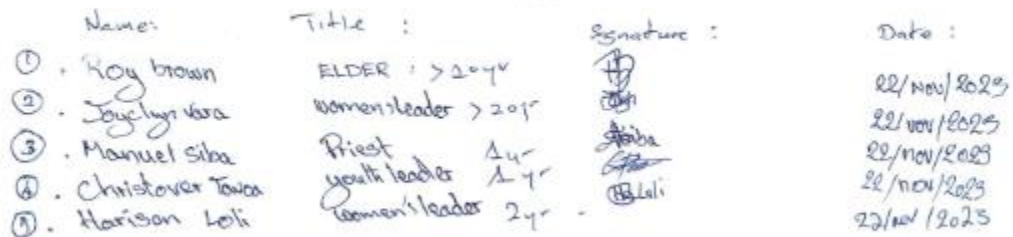 Name: Title : Signature : Date :
① . Roy brown ELDER : > 20yr 22/Nov/2023
② . Joyclyn vara women's leader > 20yr 22/nov/2023
③ . Manuel Siba Priest 1yr Siba 22/nov/2023
④ . Christover Tavoa youth leader 1yr 22/nov/2023
⑤ . Harison Loli women's leader 2yr . Loli 22/nov/2023